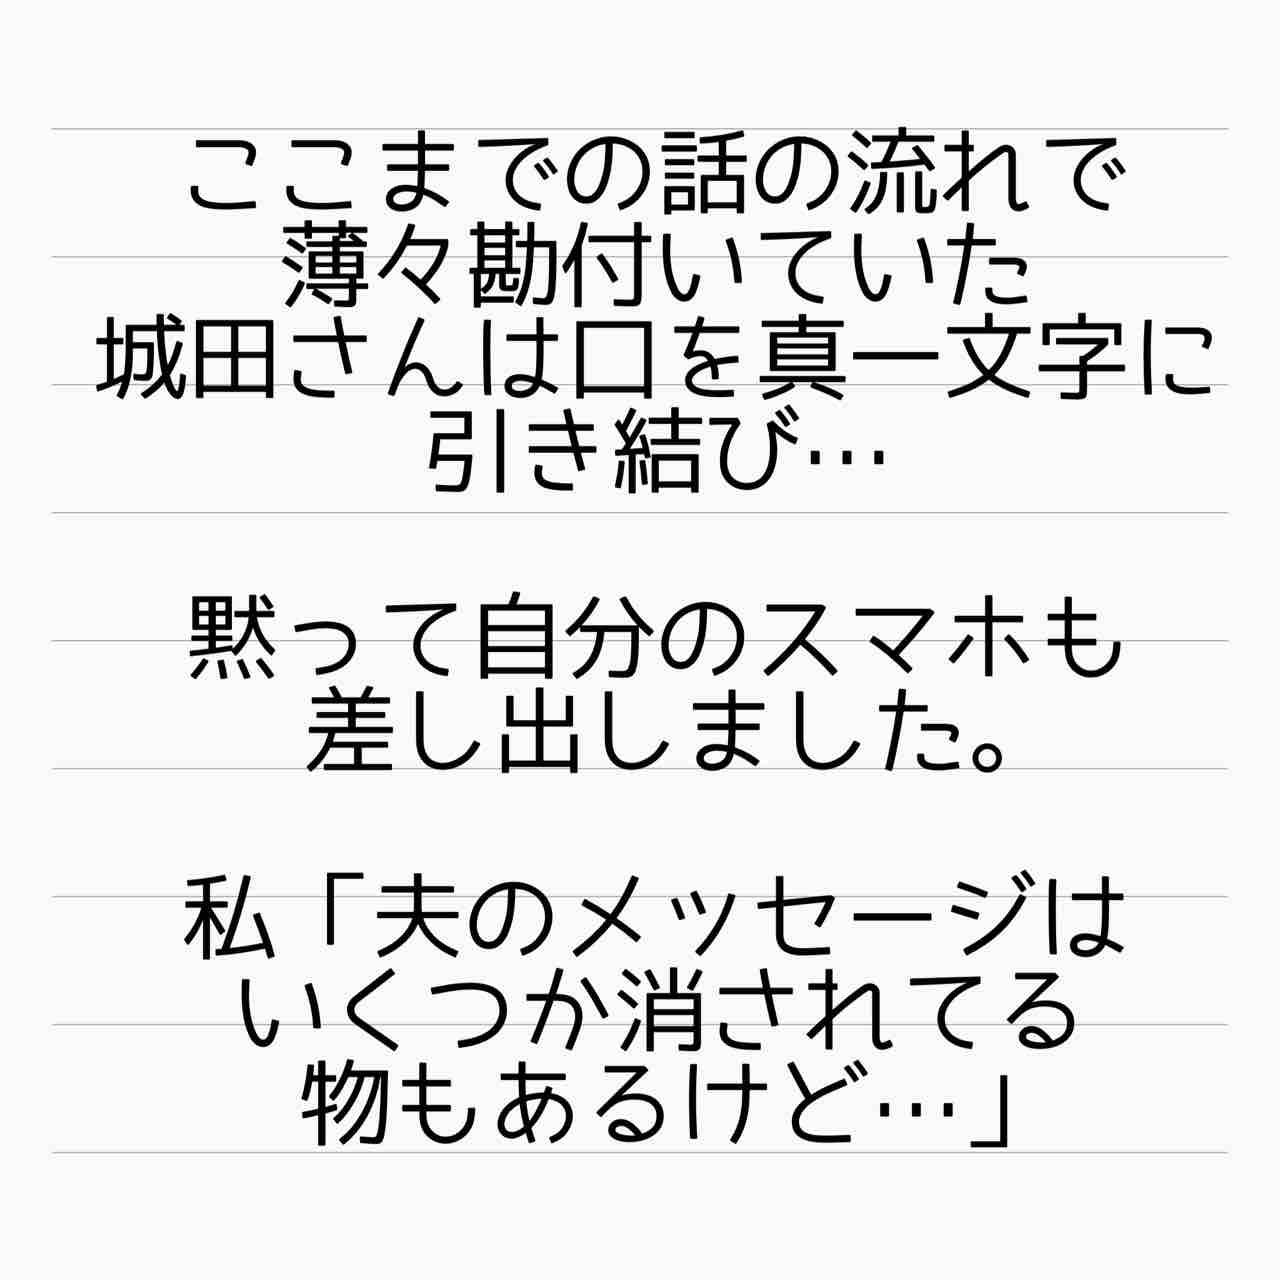 ここまでの話の流れで
薄々勘付いていた
城田さんは口を真一文字に
引き結び…
黙って自分のスマホも
差し出しました。
私「夫のメッセージは
いくつか消されてる
物もあるけど…」